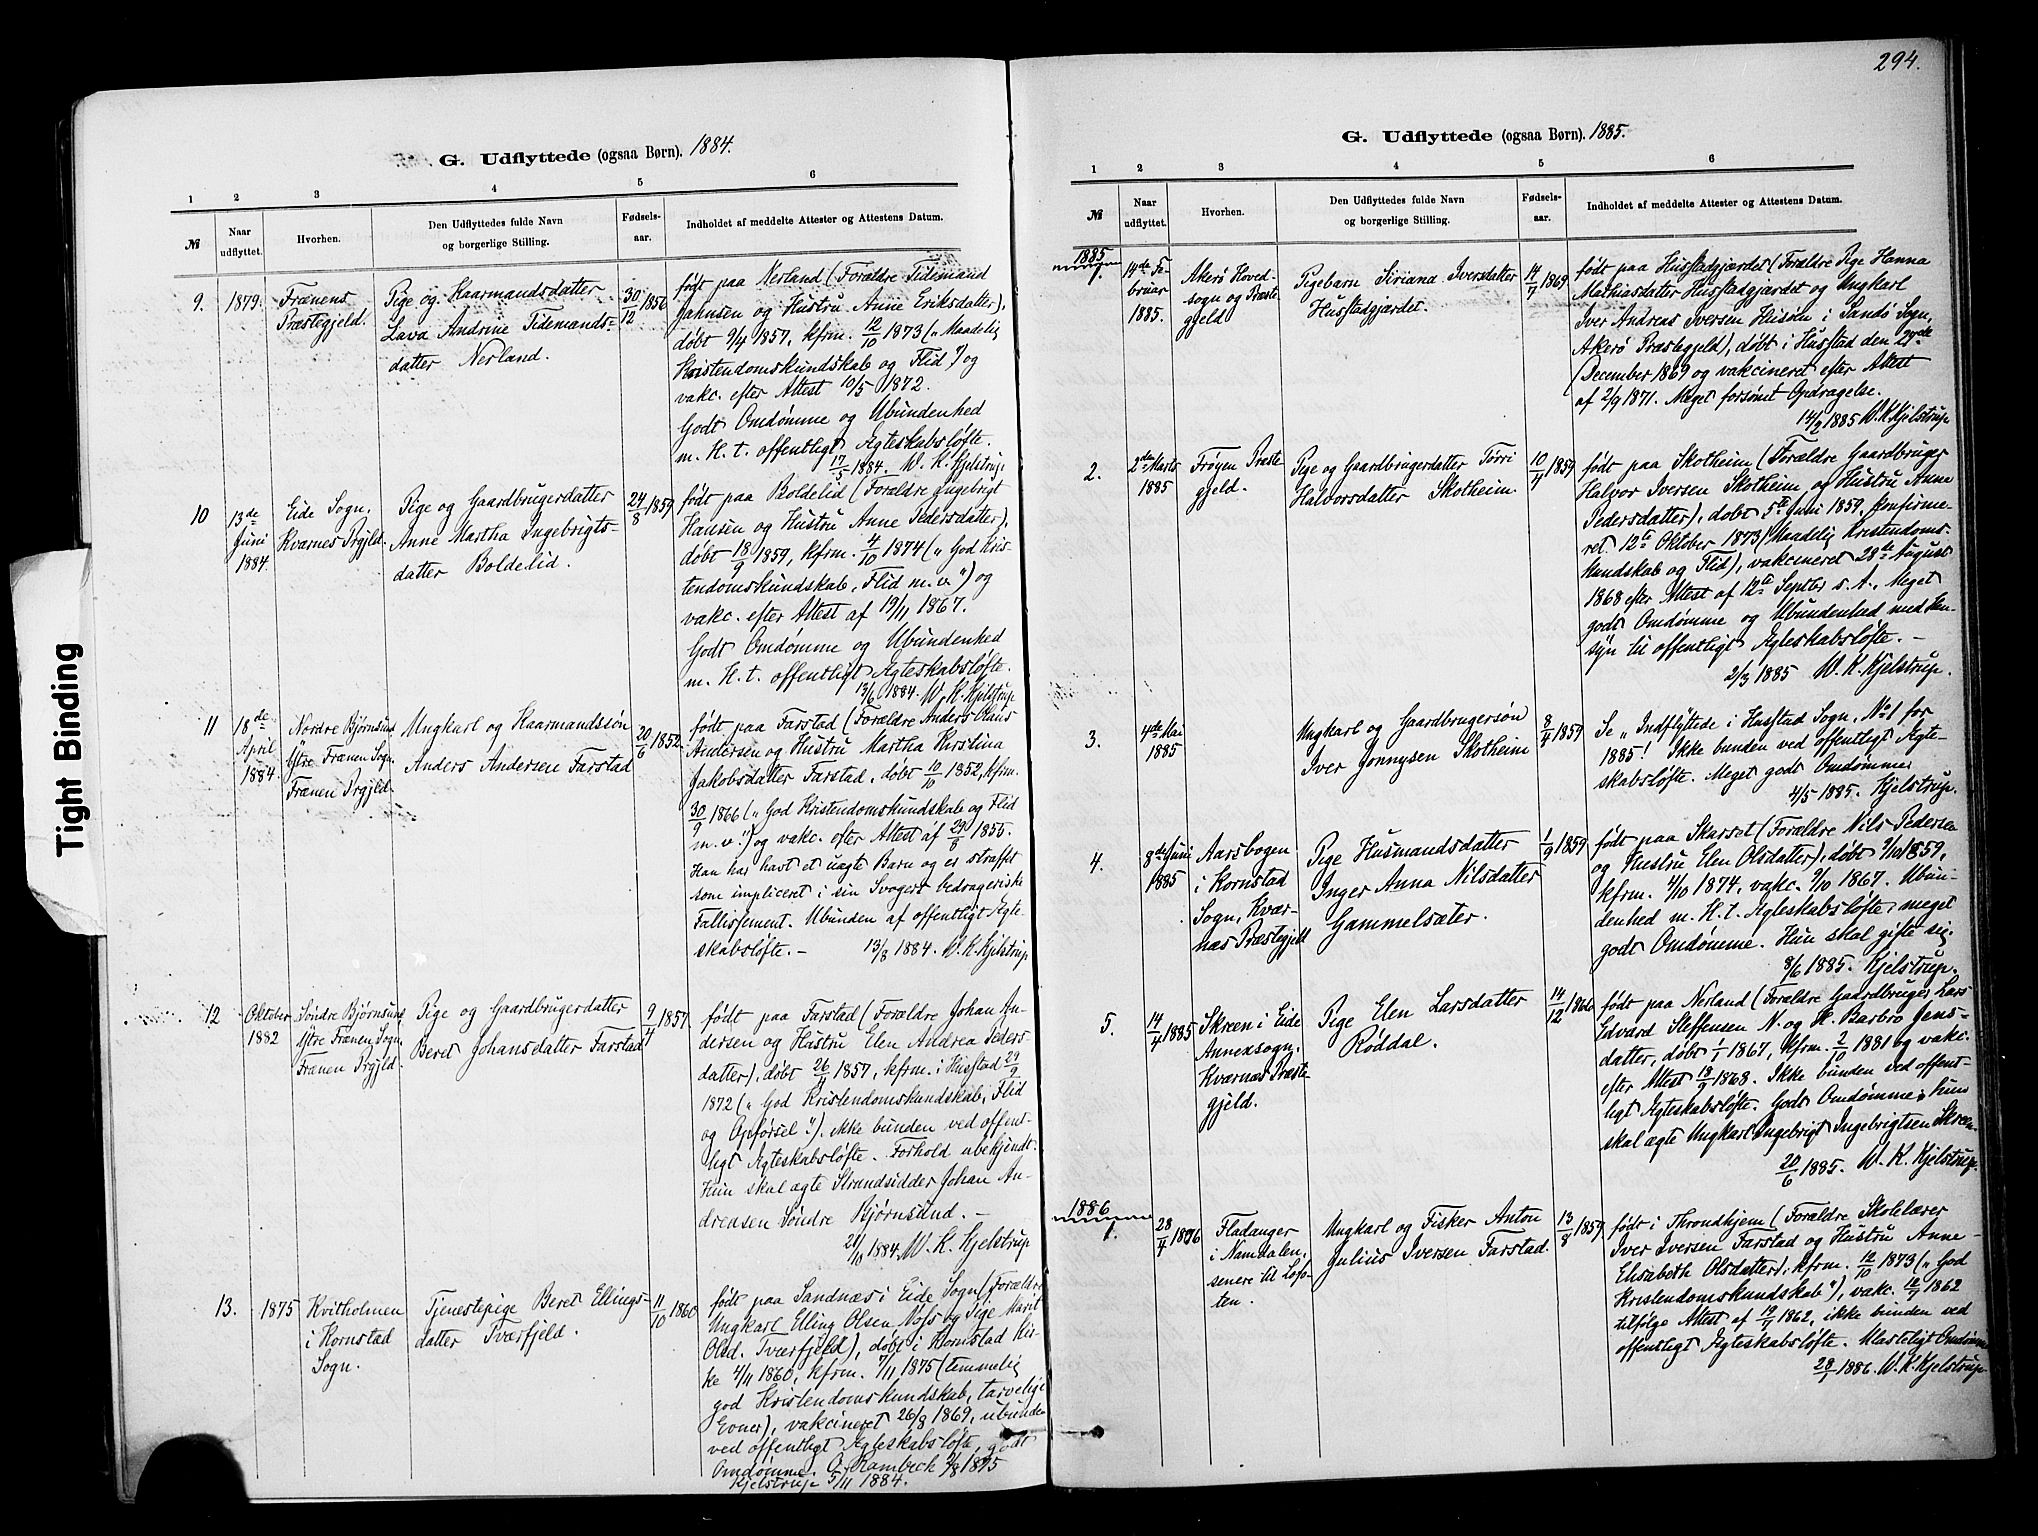 Tight Binding
G. Udflyttede (ogsaa Børn). 1884.
1 2 3 4 5 6
№ Naar udflyttet. Hvorhen. Den Udflyttedes fulde Navn og borgerlige Stilling. Fødselsaar. Indholdet af meddelte Attester og Attestens Datum.
9. 1879. Frænens
Præstegjeld.
Pige og Kaarmandsdatter
Lava Andrine Tidemands-
datter Nerland.
30/12 1856
født paa Nerland (Forældre Tidemand
Jahnsen og Hustru Anne Eriksdatter),
døbt 9/4 1857, kfrm. 12/10 1873 („Maadelig
Kristendomskundskab og Flid") og
vakc. efter Attest 10/5 1872.
Godt Omdømme og Ubundenhed
m. H. t. offentligt Ægteskabsløfte.
17/5 1884. W. K. Kjelstrup.
10 13de
Juni
1884.
Eide Sogn,
Kvarnes Prgjld.
Pige og Gaardbrugerdatter
Anne Martha Ingebrigts-
datter Boldelid.
24/8 1859
født paa Boldelid (Forældre Ingebrigt
Hansen og Hustru Anne Pedersdatter),
døbt 18/9 1859, kfrm. 4/10 1874 („God Kris-
tendomskundskab, Flid m. v.") og
vakc. efter Attest af 19/11 1867.
Godt Omdømme og Ubundenhed
m. H. t. offentligt Ægteskabsløfte.
13/6 1884. W. K. Kjelstrup
11 18de
April
1884
Nordre Bjørnsund
Ytre Frænen Sogn,
Frænen Prgjld.
Ungkarl og Kaarmandssøn
Anders Andersen Farstad
20/6 1852
født paa Farstad (Forældre Anders Olaus
Andersen og Hustru Martha Kirstina
Jakobsdatter Farstad, døbt 10/10 1852, kfrm.
30/9 1866 („God Kristendomskundskab og Flid
m. v.") og vakc. efter Attest af 29/8 1855.
Han har havt et uægte Barn og er straffet
som impliceret i sin Svogers bedrageriske
Fallissement. Ubunden af offentligt Ægte-
skabsløfte. – 13/8 1884. W. K. Kjelstrup
12 Oktober
1882
Søndre Bjørnsund
Ytre Frænen Sogn,
Frænen Prgjld.
Pige og Gaardbrugerdatter
Beret Johansdatter Farstad
9/4 1857.
født paa Farstad (Forældre Johan An-
dersen og Hustru Elen Andrea Peders-
datter), døbt 26/4 1857, kfrm. i Husstad 29/9
1872 („God Kristendomskundskab, Flid
og Opførsel."). ikke bunden ved offent-
ligt Ægteskabsløfte. Forhold ubekjendt.
Hun skal ægte Strandsidder Johan An-
dreasen Søndre Bjørnsund. –
21/10 1884. W. K. Kjelstrup
13. 1875 Kvitholmen
i Kornstad
Sogn.
Tjenestepige Beret Ellings-
datter Tværfjeld.
11/10 1860
født paa Sandnæs i Eide Sogn (Forældre
Ungkarl Elling Olsen Nøss og Pige Marit
Olsd. Tværfjeld), døbt i Kornstad Kir-
ke 4/11 1860, kfrm. 7/11 1875 (temmelig
god Kristendomskundskab, tarvelige
Evner), vakcineret 26/8 1869, ubunden
ved offentligt Ægteskabsløfte, godt
Omdømme. 1875
Kjelstrup 5/11 1884.
294.
G. Udflyttede (ogsaa Børn). 1885.
1 2 3 4 5 6
№ Naar udflyttet. Hvorhen. Den Udflyttedes fulde Navn og borgerlige Stilling. Fødselsaar. Indholdet af meddelte Attester og Attestens Datum.
1885
1. 14de Fe-
bruar
1885.
Akerø Hoved-
sogn og Præste-
gjeld
Pigebarn Siriana Iversdatter
Husstadgjærdet.
14/7 1869
født paa Husstadgjærdet (Forældre Pige Hanna
Mathiasdatter Husstadgjærdet og Ungkarl
Iver Andreas Iversen Husøen i Sandø Sogn,
Akerø Præstegjeld), døbt i Husstad den 29de
December 1869 og vakcineret efter Attest
af 2/9 1871. Meget forsømt Opdragelse.
14/2 1885 W. K. Kjelstrup
2. 2den Marts
1885
Frøyen Præste-
gjeld.
Pige og Gaardbrugerdatter Torri
Halvorsdatter Skotheim
10/4 1859
født paa Skotheim (Forældre Gaardbruger
Halvor Iversen Skotheim og Hustru Anne
Pedersdatter), døbt 5te Juni 1859, konfirme-
ret 12te Oktober 1873 (Maadelig Kristendoms-
kundskab og Flid), vakcineret 28de August
1868 efter Attest af 12te Septbr s. A., Meget
godt Omdømme og Ubundenhed med Hen-
syn til offentligt Ægteskabsløfte. –
2/3 1885 W. K. Kjelstrup.
3. 4de Mai
1885
Ungkarl og Gaardbrugersøn
Iver Jonnysen Skotheim
8/4 1859
Se „Indflyttede i Husstad Sogn, No 1 for
1885! Ikke bunden ved offentligt Ægte-
skabsløfte. Meget godt Omdømme
4/5 1885. Kjelstrup.
4. 8de Juni
1885
Aarsbogen
i Kornstad
Sogn, Kvær-
næs Præstegjeld
Pige Husmandsdatter
Inger Anna Nilsdatter
Gammelsæter.
1/9 1859
født paa Skarset (Forældre Nils Pedersen
og Hustru Elen Olsdatter), døbt 9/10 1859,
kfrm. 4/10 1874, vakc. 9/10 1867. Ubun-
denhed m. H. t. Ægteskabsløfte, meget
godt Omdømme. Hun skal gifte sig.
8/6 1885. Kjelstrup.
5. 14/4 1885
Skreen i Eide
Annexsogn,
Kværnæs Præste-
gjeld.
Pige Elen Larsdatter
Røddal.
14/12 1866
født paa Nerland (Forældre Gaardbruger Lars
Edvard Steffensen N. og H. Barbro Jens-
datter, døbt 1/1 1867, kfrm. 2/10 1881 og vakc.
efter Attest 18/9 1868. Ikke bunden ved offent-
ligt Ægteskabsløfte. Godt Omdømme; hun
skal ægte Ungkarl Ingebrigt Ingebrigtsen Skreen.
20/6 1885. W. K. Kjelstrup.
1886
1. 28/4 1886
Fladanger
i Namdalen,
senere til Lofo-
ten.
Ungkarl og Fisker Anton
Julius Iversen Farstad.
13/8 1859
født i Throndhjem (Forældre Skolelærer
Iver Iversen Farstad og Hustru Anne
Elisabeth Olsdatter), kfrm. 12/10 1873 („God
Kristendomskundskab"), vakc. 12/7 1862
tilfølge Attest af 19/7 1862, ikke bunden ved
offentligt Ægteskabsløfte. Ulasteligt Omdømme
28/1 1886. W. K. Kjelstrup